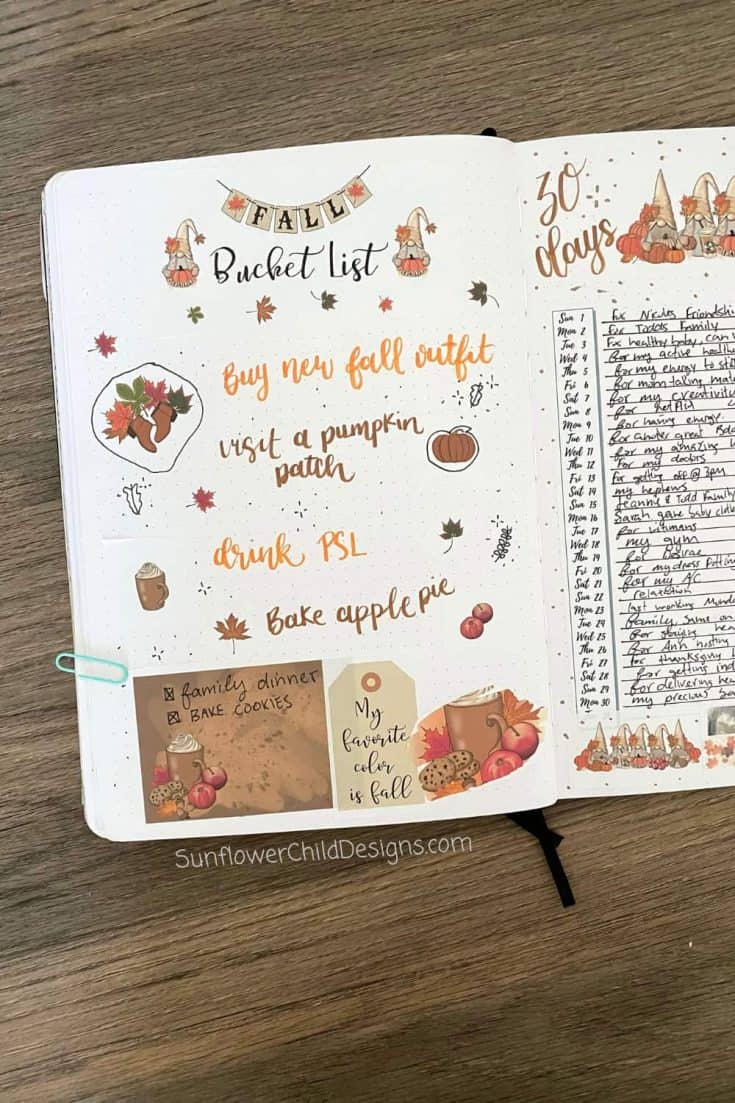 FALL
Bucket List
Buy new fall outfit
visit a pumpkin
patch
drink PSL
Bake apple pie
family dinner
BAKE COOKIES
My
favorite
color
is fall
30
days
Sun 1 Friendship
Mon 2 For Todds Family
Tue 3 healthy baby
Wed 4 for my active
Thu 5 for my energy to
Fri 6 for mom taking
Sat 7 for my creativity
Sun 8 for
Mon 9 for having energy.
Tue 10 for another great
Wed 11 for my amazing
Thu 12 For my doctors
Fri 13 for getting off @ 3pm
Sat 14 my nephews
Sun 15 Jeanne & Todd Family
Mon 16 Sarah gave baby
Tue 17 for
Wed 18 my gym
Thu 19 for
Fri 20 for
Sat 21 for my A/C
Sun 22 relaxation
Mon 23 last working
Tue 24 family,
Wed 25 for
Thu 26 for Ann hosting
Fri 27 for thanksgiving
Sat 28 for getting
Sun 29 for delivering
Mon 30 my precious
SunflowerChildDesigns.com